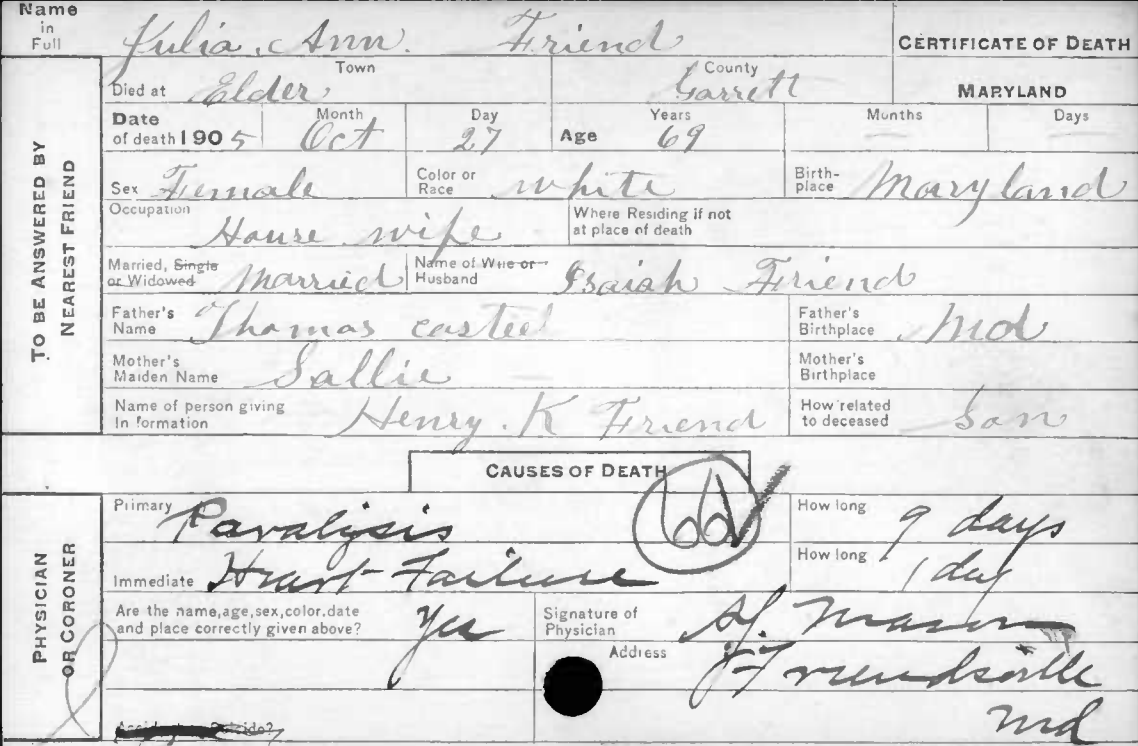 Name in Full Julia. Ann. Friend CERTIFICATE OF DEATH
TO BE ANSWERED BY NEAREST FRIEND
Died at Town Elder County Garrett MARYLAND
Date of death 1905 Month Oct Day 27 Age Years 69 Months — Days —
Sex Female Color or Race white Birth-place Maryland
Occupation House wife Where Residing if not at place of death
Married, Single or Widowed Married Name of Wife or Husband Isaiah Friend
Father's Name Thomas casteel Father's Birthplace Md
Mother's Maiden Name Sallie — Mother's Birthplace
Name of person giving Information Henry. K Friend How related to deceased Son
CAUSES OF DEATH
PHYSICIAN OR CORONER
Primary Paralysis How long 9 days
66
Immediate Heart Failure How long 1 day
Are the name, age, sex, color, date and place correctly given above? Yes Signature of Physician Mason
Address Friendsville
Md
Accident or Suicide?